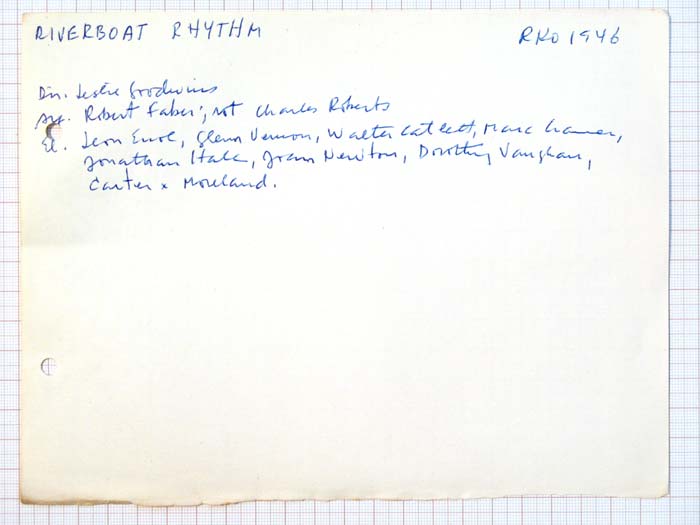 RIVERBOAT RHYTHM RKO 1946
Dir. Leslie Goodwins
Robert Faber; not Charles Roberts
Leon Errol, Glenn Vernon, Walter Catlett, Marc Cramer,
Jonathan Hale, Joan Newton, Dorothy Vaughan,
Carter x Moreland.